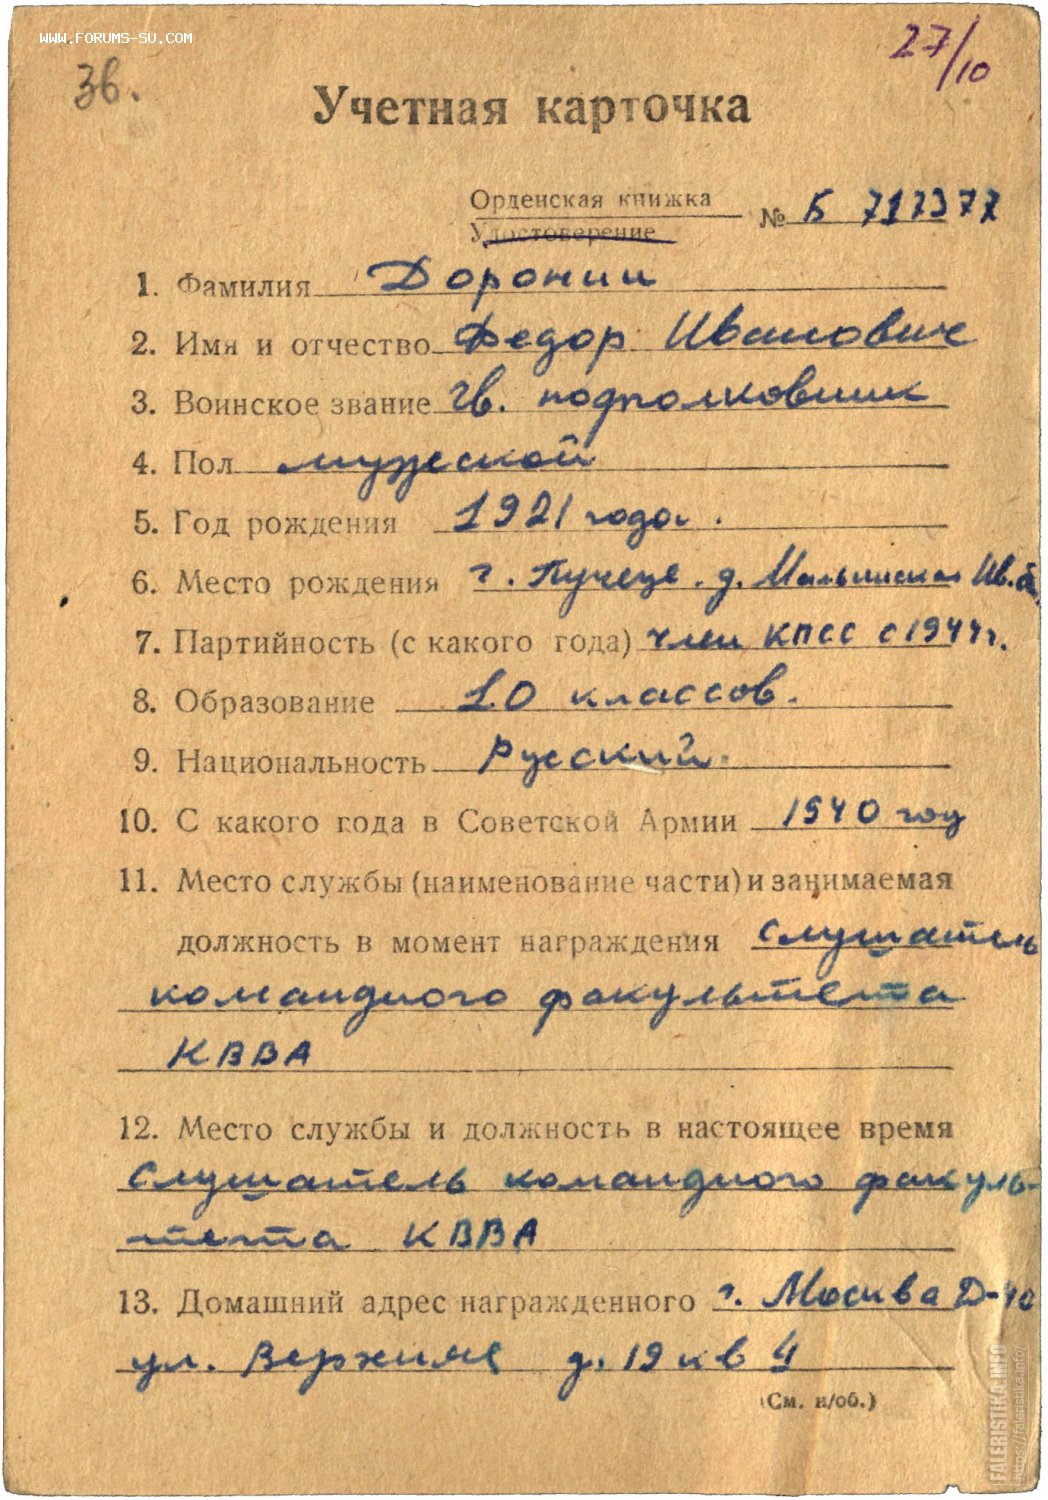 WWW.FORUMS-SU.COM
27/10
36.
Учетная карточка
Орденская книжка
Удостоверение
№ Б 717377
1. Фамилия Доронин
2. Имя и отчество Федор Иванович
3. Воинское звание гв. подполковник
4. Пол мужской
5. Год рождения 1921 года.
6. Место рождения г. Пучеж. д. Ив.
7. Партийность (с какого года) член КПСС с 1944 г.
8. Образование 10 классов.
9. Национальность Русский.
10. С какого года в Советской Армии 1940 год
11. Место службы (наименование части) и занимаемая
должность в момент награждения слушатель
командного факультета
КВВА
12. Место службы и должность в настоящее время
слушатель командного факуль-
тета КВВА
13. Домашний адрес награжденного г. Москва Д-40
ул. д. 19 кв 4
(См. н/об.)
FALERISTIKA.INFO
https://faleristika.info